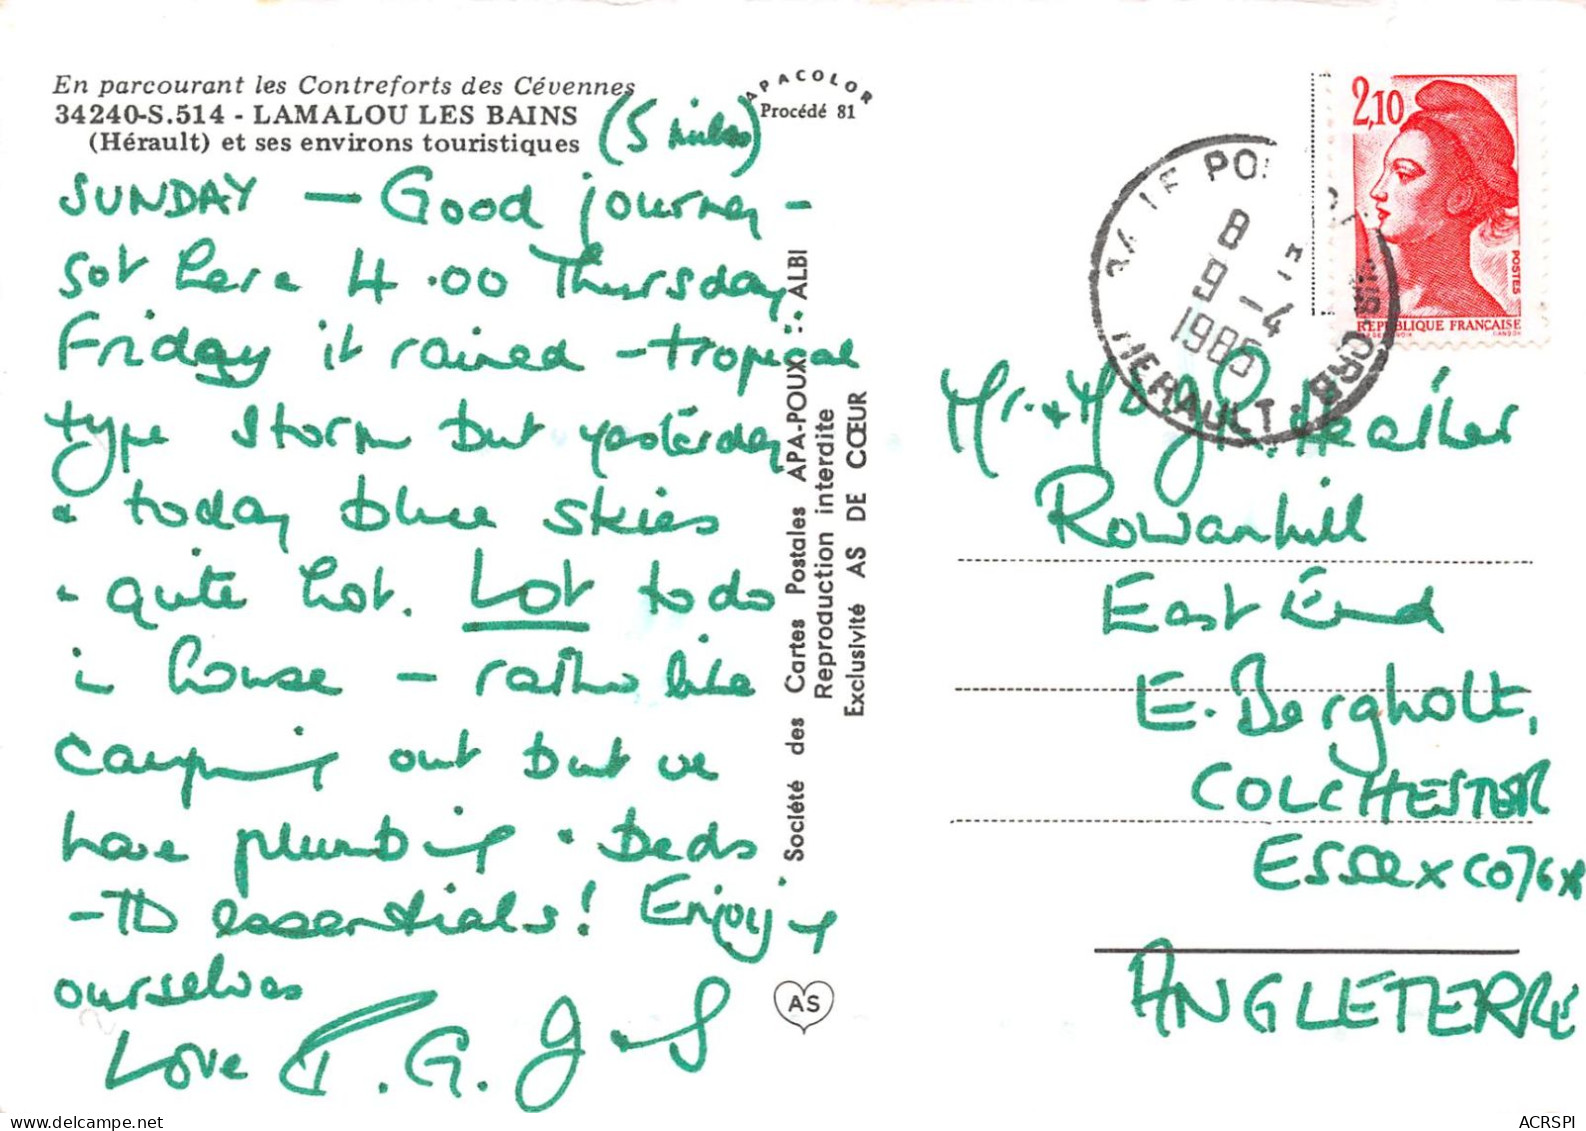 En parcourant les Contreforts des Cévennes
34240-S.514 - LAMALOU LES BAINS
(Hérault) et ses environs touristiques
(5 miles)
APACOLOR
Procédé 81
SUNDAY — Good journey -
got here 4.00 Thursday
Friday it rained - tropical
type storm but yesterday
& today blue skies
- quite hot. Lot to do
in house - rather like
camping out but we
have plumbing & beds
- TD essentials! Enjoying
ourselves
Love T. G. J + S
Société des Cartes Postales APA-POUX :: ALBI
Reproduction interdite
Exclusivité AS DE CŒUR
AS
2,10
POSTES
REPUBLIQUE FRANÇAISE
8
9 - 4
1985
HERAULT
Mr. & Mrs J. Heather
Rowanhill
East End
E. Bergholt,
COLCHESTER
Essex CO7 6X
ANGLETERRE
ACRSPI